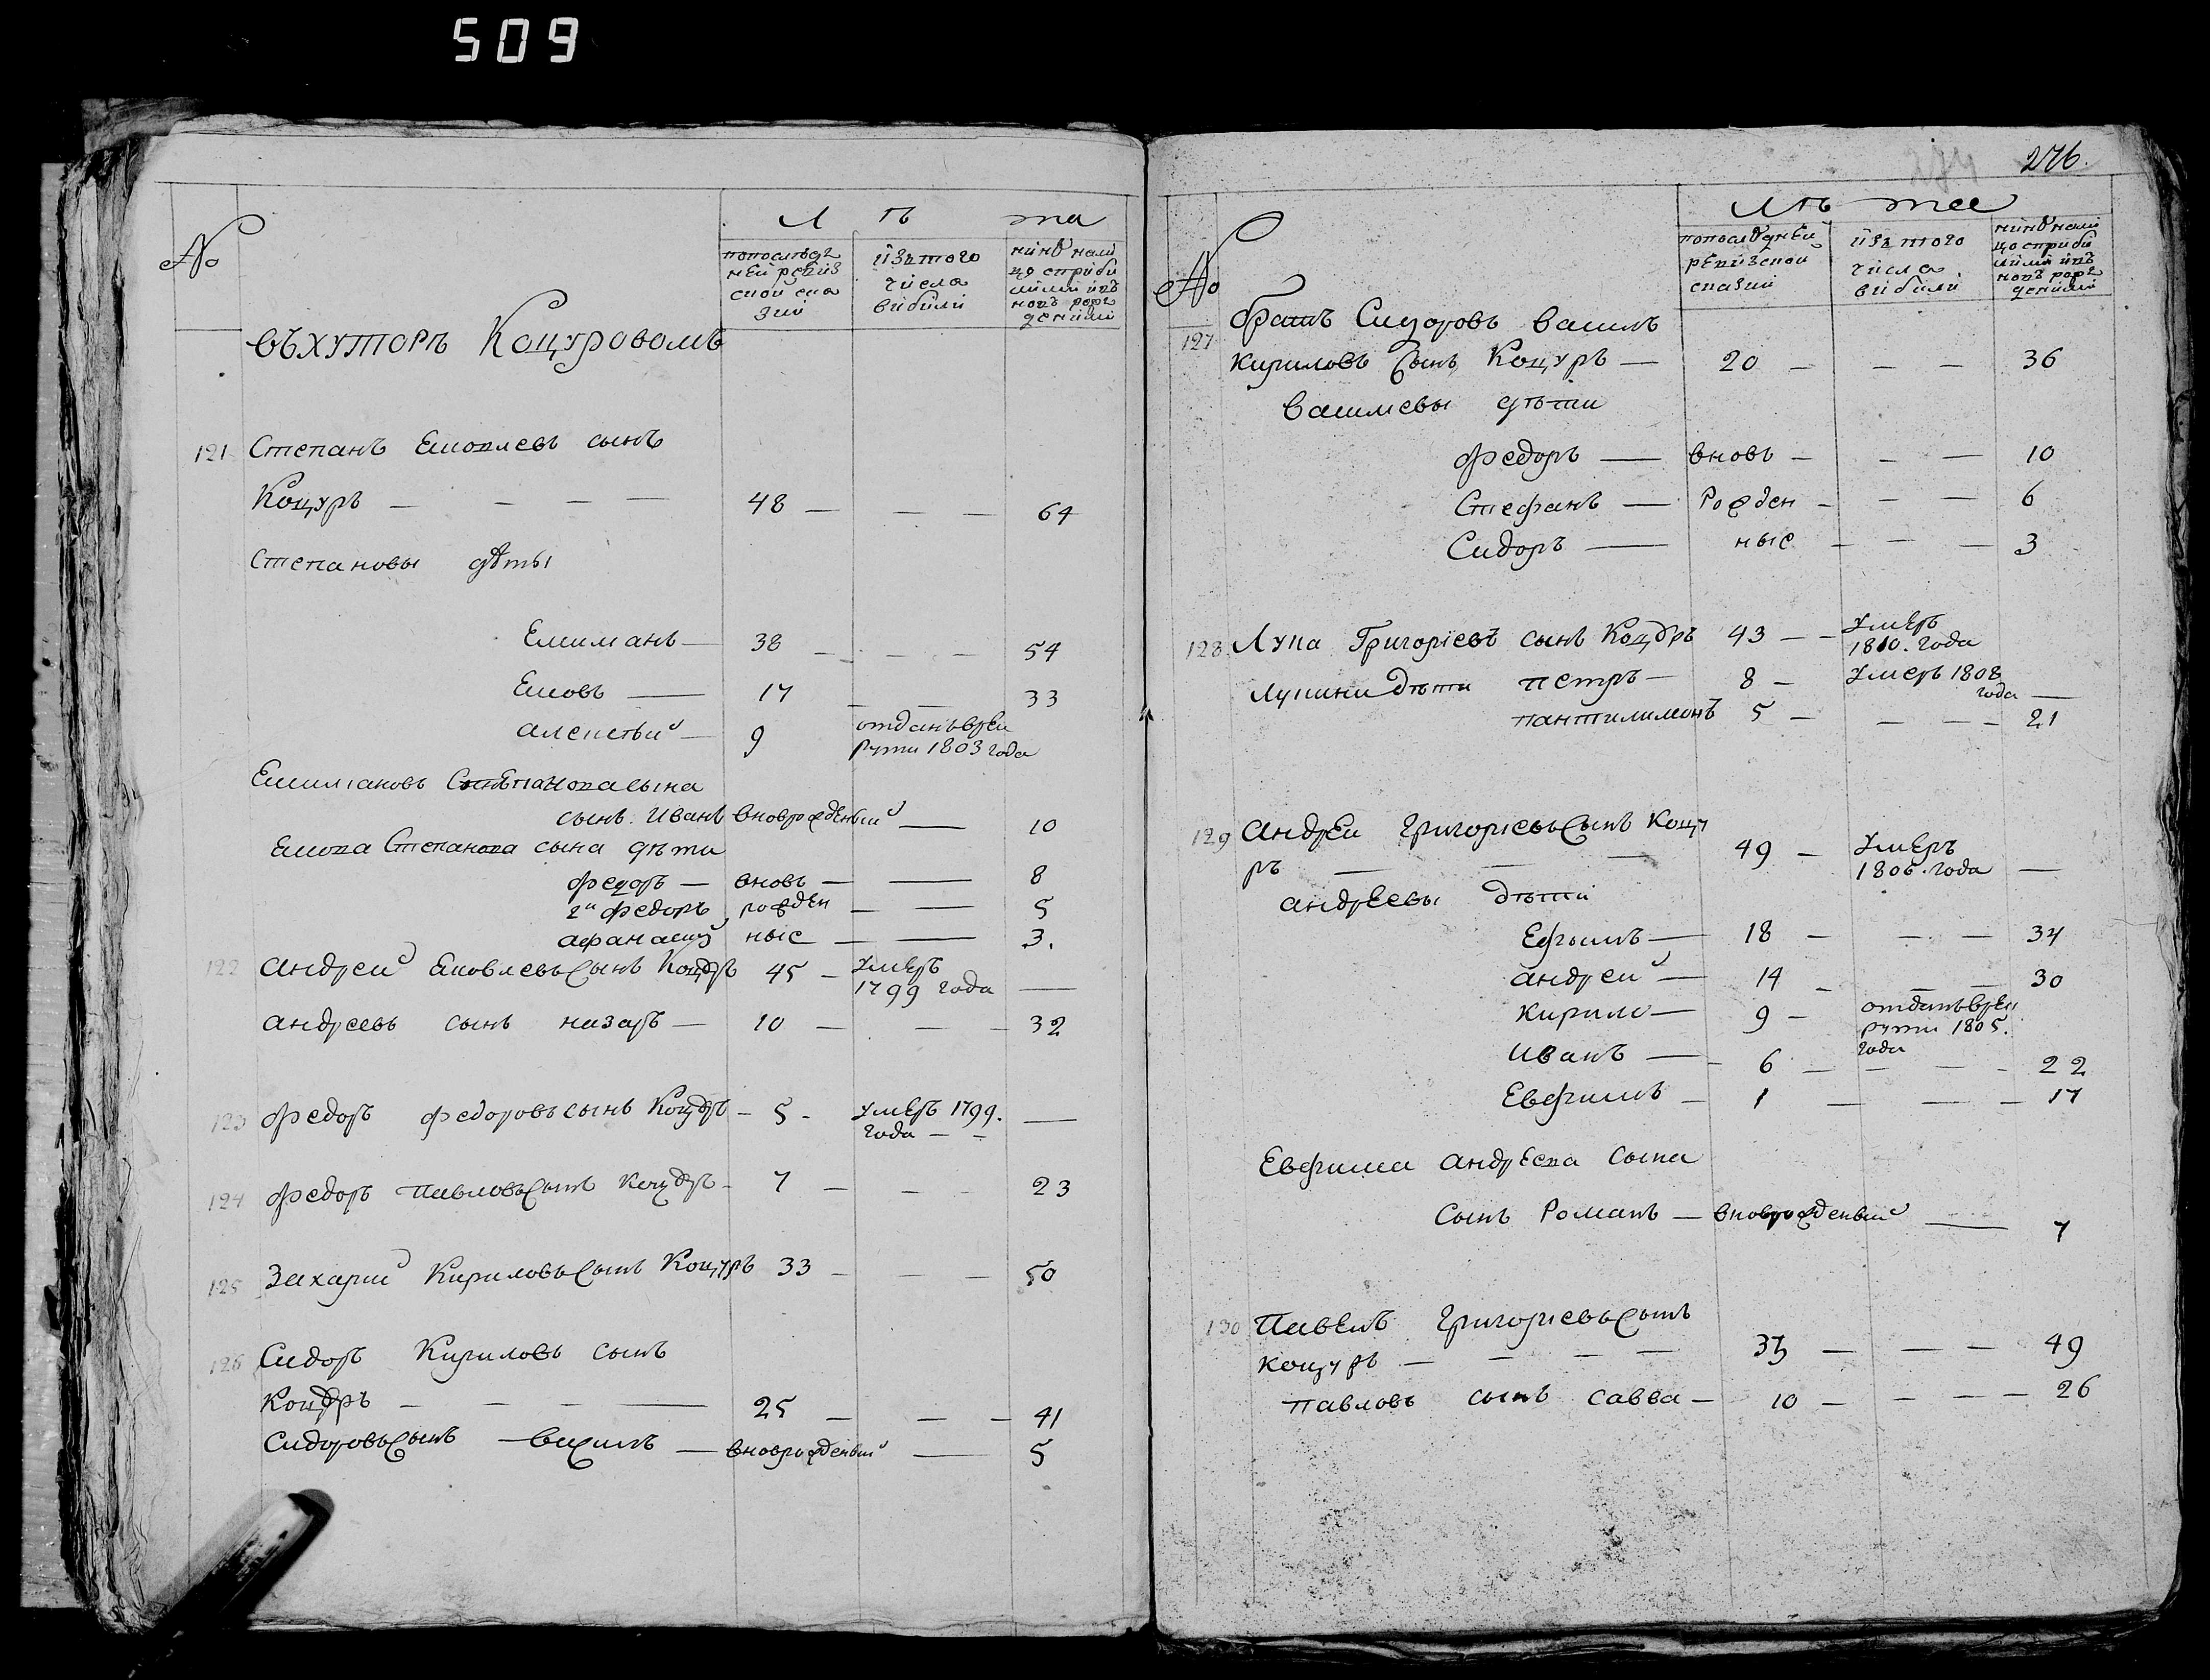 509
№
Лѣта
попослѣдъ
ней ревиз
ской ска
зки
изъ того
числа
вибили
нинѣ нали
цо съ приби
лими и въ
новъ рож
деними
въ хуторѣ Коцуровомъ
121 Степанъ Яковлевъ сынъ
Коцуръ — — — — 48 — — — 64
Степановы дѣты
Емилианъ — 38 — — — 54
Яковъ — 17 — — 33
алексѣй — 9 отданъ в рек
рути 1803 года
Емилиановъ Степанова сына
сынъ Иванъ вноврожденый — 10
Якова Степанова сына дѣти
Федоръ — вновь — — 8
2й Федоръ рожден — — 5
афанасий ныє — — 3.
122 андрей Яковлевъ сынъ Коцуръ 45 — умеръ
1799 года —
андреевъ сынъ назаръ — 10 — — — 32
123 Федоръ Федоровъ сынъ Коцуръ — 5 - умеръ 1799.
года — — —
124 Федоръ Павловъ сынъ Коцуръ — 7 — — — 23
125 Захарий Кириловъ сынъ Коцуръ 33 — — — 50
126 Сидоръ Кириловъ сынъ
Коцуръ — — — — 25 — — — 41
Сидоровъ сынъ — Василъ — вноврожденый — 5
276.
№
Лѣта
попослѣдней
ревизской
сказки
изъ того
числа
вибили
нинѣ нали
цо съ приби
лими и въ
новъ рож
деними
127 братъ Сидоровъ Василъ
Кириловъ сынъ Коцуръ — 20 — — — 36
Василевы дѣти
Федоръ — вновь — — — 10
Стефанъ — рожден — — — 6
Сидоръ — ныє — — — 3
128 Лупа Григориевъ сынъ Коцуръ 43 — — умеръ
1810. года
лупини дѣти петръ — 8 — умеръ 1808
года —
пантилимонъ 5 — — — — 21
129 андрей Григориевъ сынъ Коцу
ръ — — — 49 — умеръ
1806. года —
андреевы дѣти
Ефимъ — 18 — — — 34
андрей — 14 — — — 30
кирило — 9 — отданъ в рек
рути 1805.
года
Иванъ — 6 — — — - 22
Евфимъ — 1 — — — 17
Евфима андреева сына
сынъ Романъ — вноврожденый — 7
130 Павелъ Григориевъ сынъ
коцуръ — — — — 33 — — — 49
павловъ сынъ савва — 10 — — — — 26